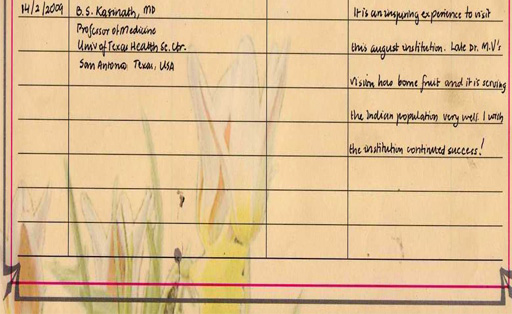 14/2/2009
B.S. Kasinath, MD
Professor of Medicine
Univ of Texas Health Sc. Ctr.
San Antonio, Texas, USA
It is an inspiring experience to visit
this august institution. Late Dr. M.V's
vision has borne fruit and it is serving
the Indian population very well. I wish
the institution continued success!